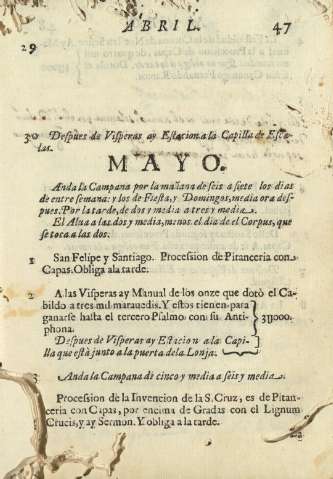 ABRIL. 47
29
30 Despues de Visperas ay Estacion a la Capilla de Escalas.
MAYO.
Anda la Campana por la mañana de seis a siete los dias
de entre semana: y los de Fiesta, y Domingos, media ora despues. Por la tarde, de dos y media a tres y media.
El Alua a las dos y media, menos el dia de el Corpus, que
se toca a las dos.
1 San Felipe y Santiago. Procession de Pitanceria con
Capas. Obliga a la tarde.
2 A las Visperas ay Manual de los onze que dotò el Cabildo a tres mil marauedis. Y estos tienen para
ganarse hasta el tercero Psalmo con su Antiphona. 3y000.
Despues de Visperas ay Estacion a la Capilla que està junto a la puerta de la Lonja.
3 Anda la Campana de cinco y media a seis y media.
Procession de la Inuencion de la S. Cruz, es de Pitanceria con Capas, por encima de Gradas con el Lignum
Crucis, y ay Sermon. Y obliga a la tarde.